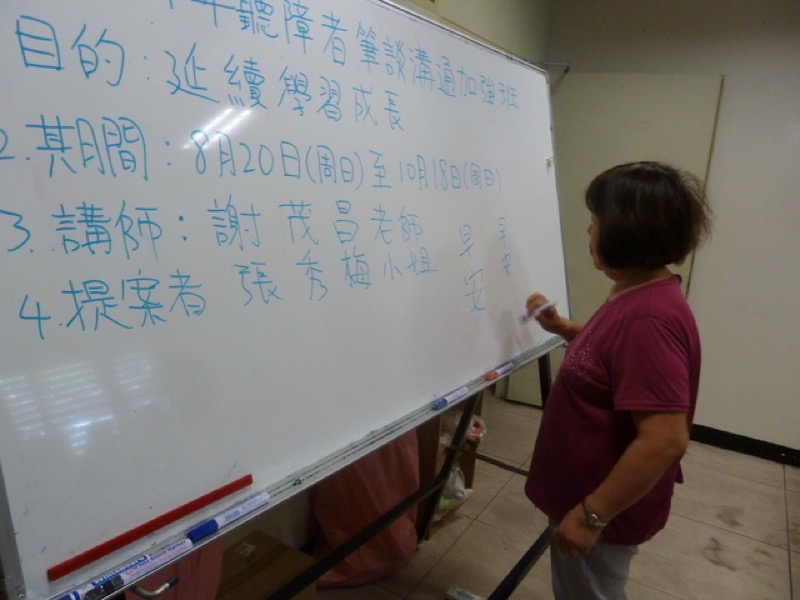 年聽障者筆談溝通加強班
目的：延續學習成長
2.期間：8月20日(周日)至10月18日(周日)
3.講師：謝茂昌老師
4.提案者 張秀梅小姐
早安
早安